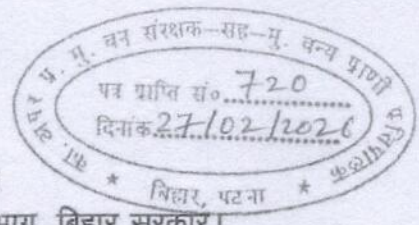 का. अपर प्र. मु. वन संरक्षक-सह-मु. वन्य प्राणी प्रतिपालक
पत्र प्राप्ति सं० 720
दिनांक 27/02/2026
* बिहार, पटना *
बिहार सरकार।